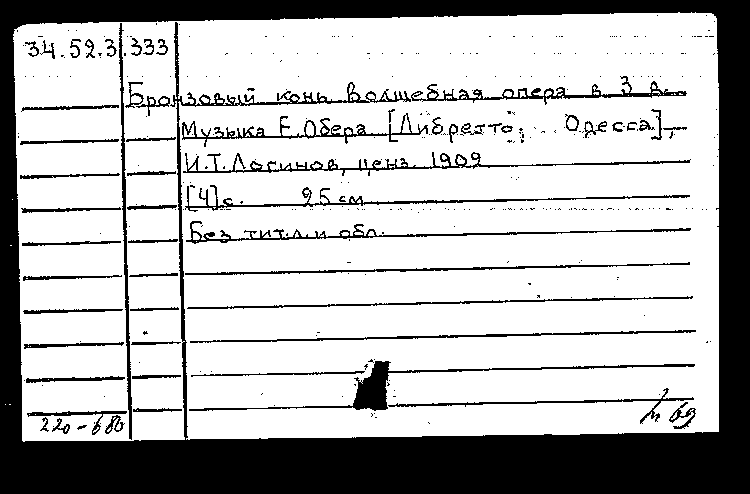 34.52.3.333
Бронзовый конь волшебная опера в 3 д.
Музыка Е.Обера [Либретто; Одесса],
И.Т.Логинов, ценз. 1902
[4]с. 25 см
Без тит.л и обл.
220-680
69